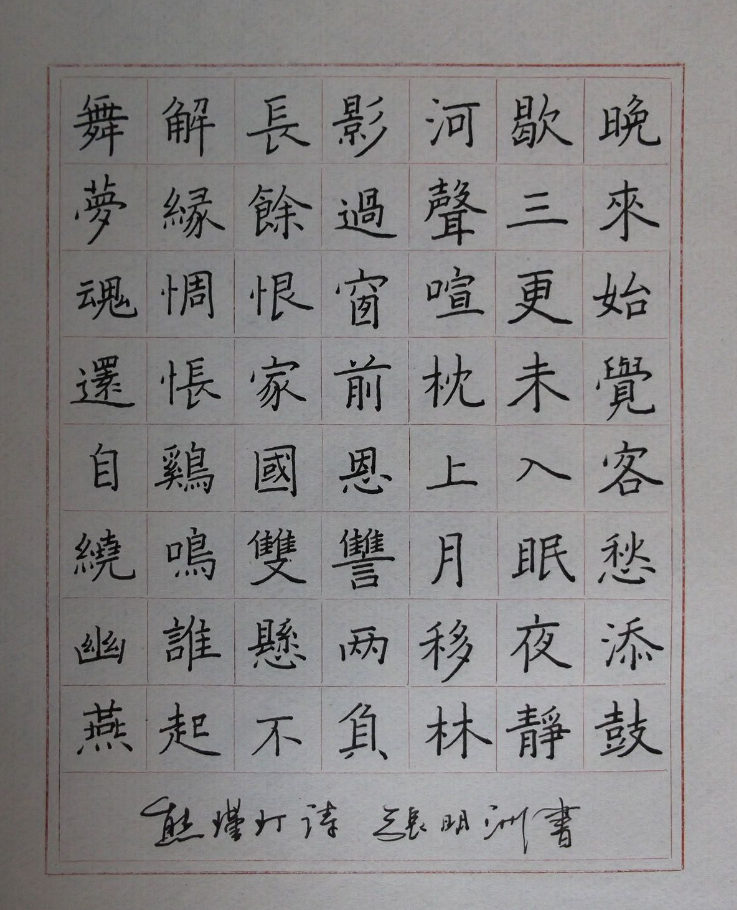 晚來始覺客愁添鼓
歇三更未入眠夜靜
河聲喧枕上月移林
影過窗前恩讐两負
長餘恨家國雙懸不
解緣惆悵鷄鳴誰起
舞夢魂還自繞幽燕
熊瑾玎诗 张明洲書